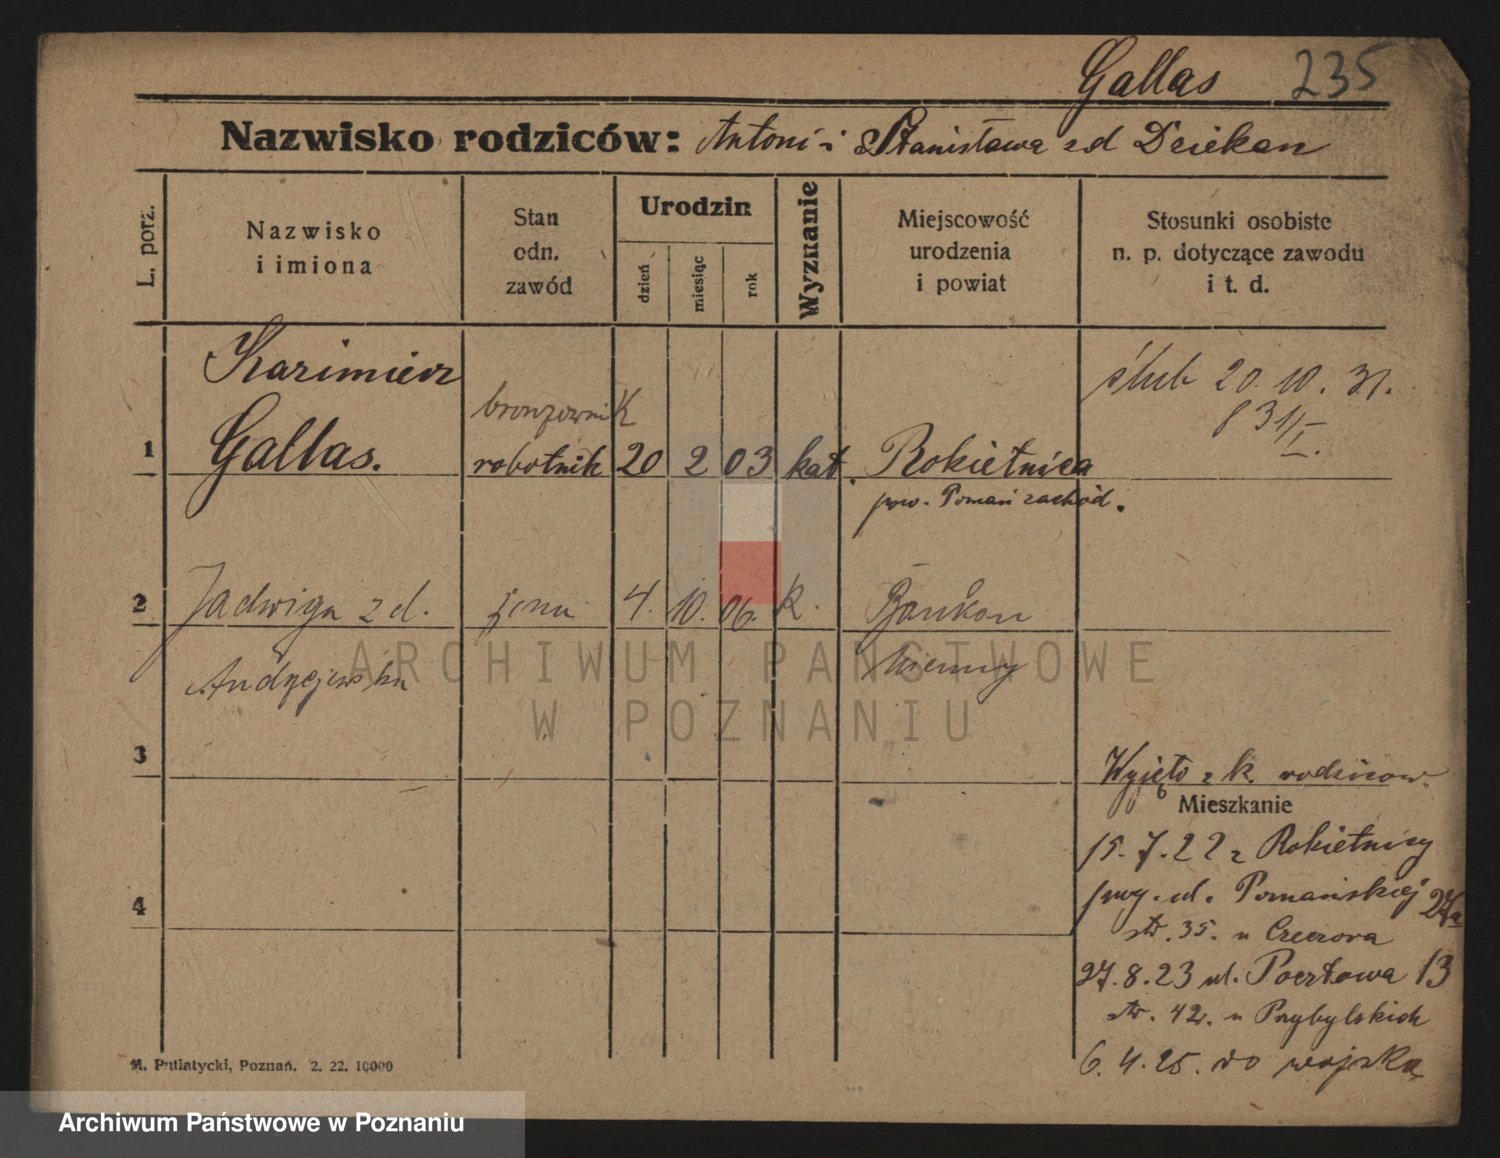 Gallas 235
Nazwisko rodziców: Antoni i Stanisława zd Dziekan
L. porz.
Nazwisko
i imiona
Stan
odn.
zawód
Urodzin
dzień
miesiąc
rok
Wyznanie
Miejscowość
urodzenia
i powiat
Stosunki osobiste
n. p. dotyczące zawodu
i t. d.
Kazimierz
ślub 20. 10. 31.
bronzownik
1 Gallas. robotnik 20 2 03 kat. Rokietnica
pow. Poznań zachód.
2 Jadwiga zd. żona 4. 10. 06. k.
Andrzejewska Niemcy
3
Wyjęto z k. rodziców
Mieszkanie
15. 7. 22 z Rokietnicy
ul. Poznańskiej 27a
str. 35. u
4
27. 8. 23 ul. Pocztowa 13
str. 42. u Przybylskich
6. 4. 25. do wojska
M. Putiatycki, Poznań. 2. 22. 10000
ARCHIWUM PAŃSTWOWE
W POZNANIU
Archiwum Państwowe w Poznaniu